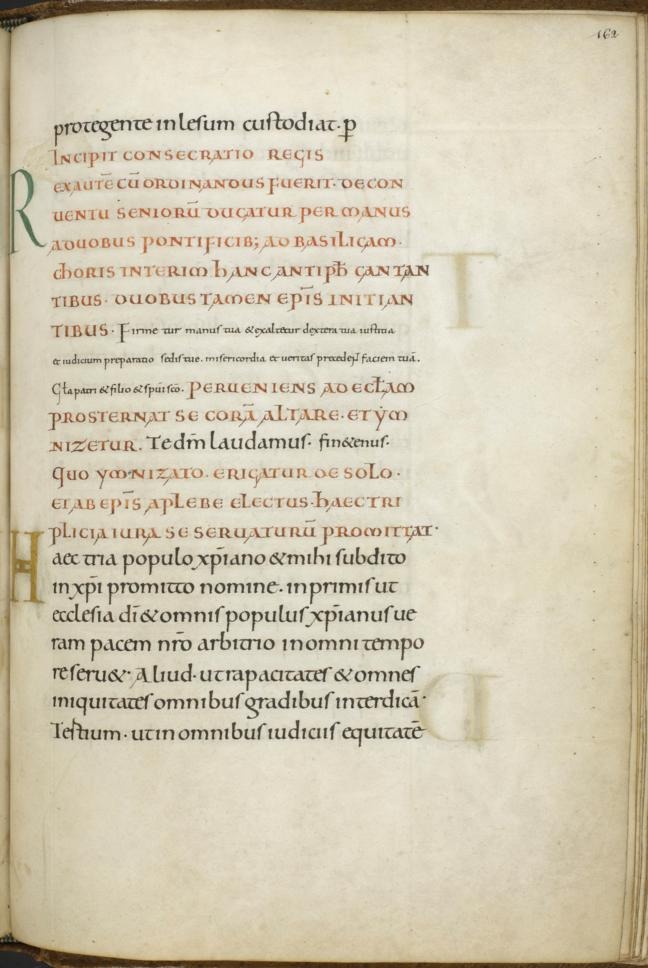 162
protegente inlesum custodiat· p̄
INCIPIT CONSECRATIO REGIS
REX AUTĒ CŪ ORDINANDUS FUERIT· DE CON
UENTU SENIORŪ DUCATUR PER MANUS
A DUOBUS PONTIFICIB; AD BASILICAM·
CHORIS INTERIM HANC ANTIPH̄ CANTAN
TIBUS· DUOBUS TAMEN EP̄IS INITIAN
TIBUS· Firme tur manus tua & exaltetur dextera tua iustitia
et iudicium preparatio sedis tue· misericordia et ueritas precedeɲ faciem tuā.
Gl̄a patri & filio & spūi sc̄o· PERUENIENS AD ECL̄AM
PROSTERNAT SE CORĀ ALTARE· ET YM̄
NIZETUR. Te dm̄ laudamus· fin&enus·
QUO YMNIZATO· ERIGATUR DE SOLO·
ET AB EP̄IS A PLEBE ELECTUS· HAEC TRI
PLICIA IURA SE SERUATURŪ PROMITTAT·
Haec tria populo xp̄iano & mihi subdito
in xp̄i promitto nomine· in primis ut
ecclesia dī & omnis populus xp̄ianus ue
ram pacem nr̄o arbitrio in omni tempo
re seru&· Aliud· ut rapacitates & omnes
iniquitates omnibus gradibus interdicā·
Testium· ut in omnibus iudiciis equitatē